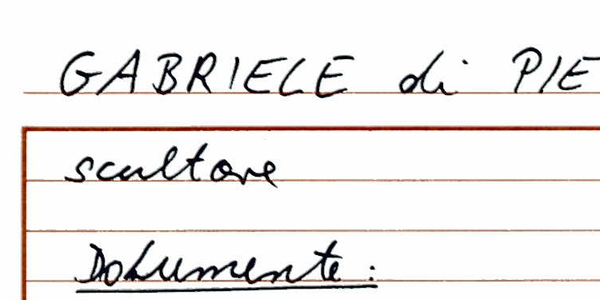 GABRIELE di PIE
scultore
Dokumente: